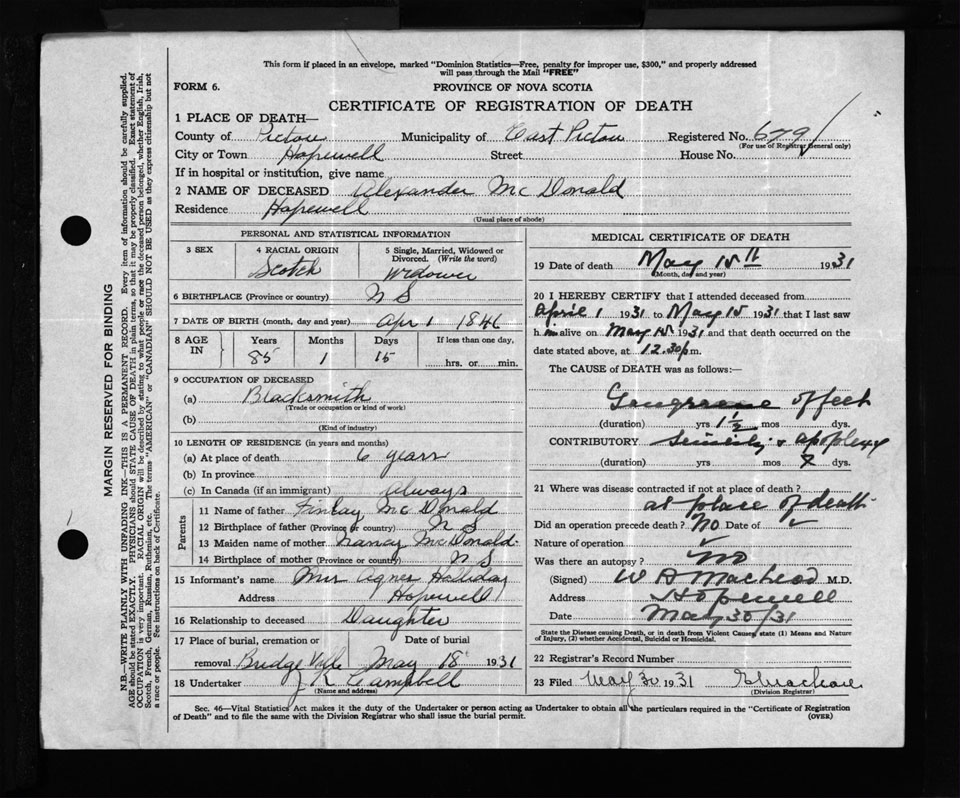 This form if placed in an envelope, marked "Dominion Statistics—Free, penalty for improper use, $300," and properly addressed
will pass through the Mail "FREE"
FORM 6.
PROVINCE OF NOVA SCOTIA
CERTIFICATE OF REGISTRATION OF DEATH
1 PLACE OF DEATH—
County of Pictou Municipality of East Pictou Registered No. 679
(For use of Registrar General only)
City or Town Hopewell Street House No.
If in hospital or institution, give name
2 NAME OF DECEASED Alexander McDonald
Residence Hopewell
(Usual place of abode)
PERSONAL AND STATISTICAL INFORMATION
3 SEX 4 RACIAL ORIGIN 5 Single, Married, Widowed or
Divorced. (Write the word)
Scotch Widower
6 BIRTHPLACE (Province or country) N S
7 DATE OF BIRTH (month, day and year) Apr 1 1846
8 AGE IN Years Months Days If less than one day,
85 1 15 hrs. or min.
9 OCCUPATION OF DECEASED
(a) Blacksmith
(Trade or occupation or kind of work)
(b)
(Kind of industry)
10 LENGTH OF RESIDENCE (in years and months)
(a) At place of death 6 years
(b) In province
(c) In Canada (if an immigrant) always
Parents
11 Name of father Finlay McDonald
12 Birthplace of father (Province or country) N S
13 Maiden name of mother Nancy McDonald
14 Birthplace of mother (Province or country) N S
15 Informant's name Mrs Agnes Halliday
Address Hopewell
16 Relationship to deceased Daughter
17 Place of burial, cremation or Date of burial
removal Bridgeville May 18 1931
18 Undertaker J K Campbell
(Name and address)
MEDICAL CERTIFICATE OF DEATH
19 Date of death May 15th 1931
(Month, day and year)
20 I HEREBY CERTIFY that I attended deceased from
April 1 1931 to May 15 1931 that I last saw
him alive on May 15 1931 and that death occurred on the
date stated above, at 12.30 p.m.
The CAUSE of DEATH was as follows:—
Gangreene of feet
(duration) yrs 1½ mos dys.
CONTRIBUTORY Senility & apoplexy
(duration) yrs mos dys.
21 Where was disease contracted if not at place of death?
at place of death
Did an operation precede death? no Date of ✓
Nature of operation ✓
Was there an autopsy? no
(Signed) W A MacLeod M.D.
Address Hopewell
Date May 30/31
State the Disease causing Death, or in death from Violent Causes, state (1) Means and Nature
of Injury, (2) whether Accidental, Suicidal or Homicidal.
22 Registrar's Record Number
23 Filed May 30 1931
(Division Registrar)
Sec. 46—Vital Statistics Act makes it the duty of the Undertaker or person acting as Undertaker to obtain all the particulars required in the "Certificate of Registration
of Death" and to file the same with the Division Registrar who shall issue the burial permit. (OVER)
MARGIN RESERVED FOR BINDING
N.B.—WRITE PLAINLY WITH UNFADING INK—THIS IS A PERMANENT RECORD. Every item of information should be carefully supplied.
AGE should be stated EXACTLY. PHYSICIANS should STATE CAUSE OF DEATH in plain terms, so that it may be properly classified. Exact statement of
OCCUPATION is very important. RACIAL ORIGIN will be described by stating to what people or race the deceased person belonged, whether English, Irish,
Scotch, French, German, Russian, Ruthenian, etc. The terms "AMERICAN" or "CANADIAN" SHOULD NOT BE USED as they express citizenship but not
a race or people. See instructions on back of Certificate.